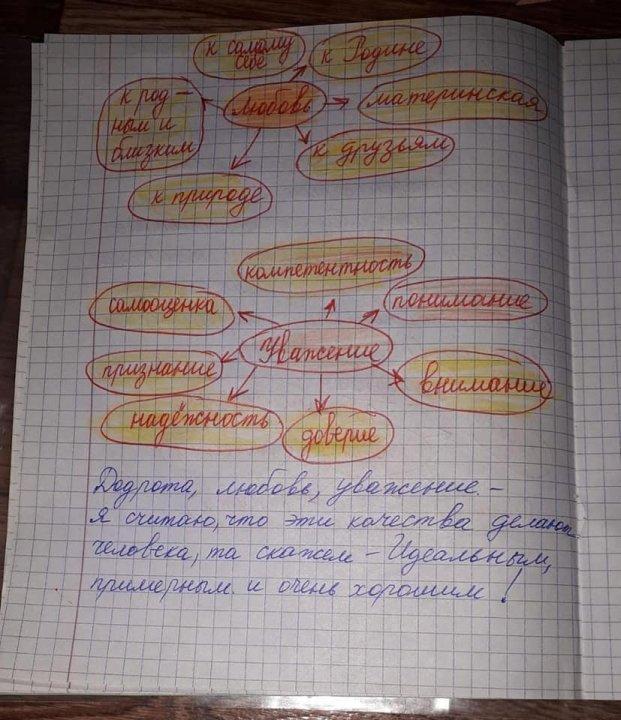 к самому
себе
к Родине
к род-
ным и
близким
любовь
материнская
к друзьям
к природе
компетентность
самооценка
понимание
Уважение
признание
внимание
надёжность
доверие
Доброта, любовь, уважение -
я считаю, что эти качества делают
человека, та скажем - Идеальным,
примерным и очень хорошим!